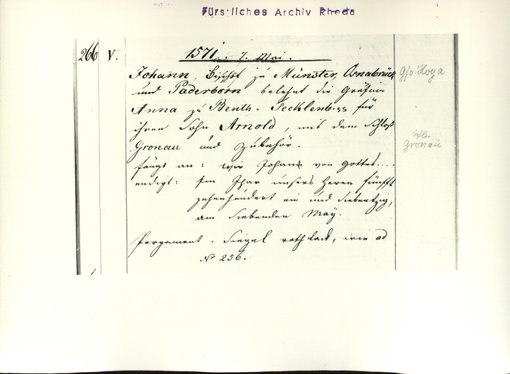 Fürstliches Archiv Rheda
266 V. 1571. 7. Mai.
Johann, Bischof zu Münster, Osnabrück Gfs. Hoya
und Paderborn belehnt die Gräfin
Anna zu Benth. Tecklenburg für
ihren Sohn Arnold, mit dem Schloß
Gronau und Zubehör. Gronau
fängt an: Wir Johann von Gottes....
endigt: Im Jhar unsers Herrn fünffz
zehenhundert ein und siebentzig,
am siebenden May.
Pergament. Siegel roth Lack, wie ad
No 236.